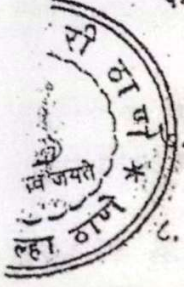 री ठाणे *
व जयते
ल्हा ठाणे
८.